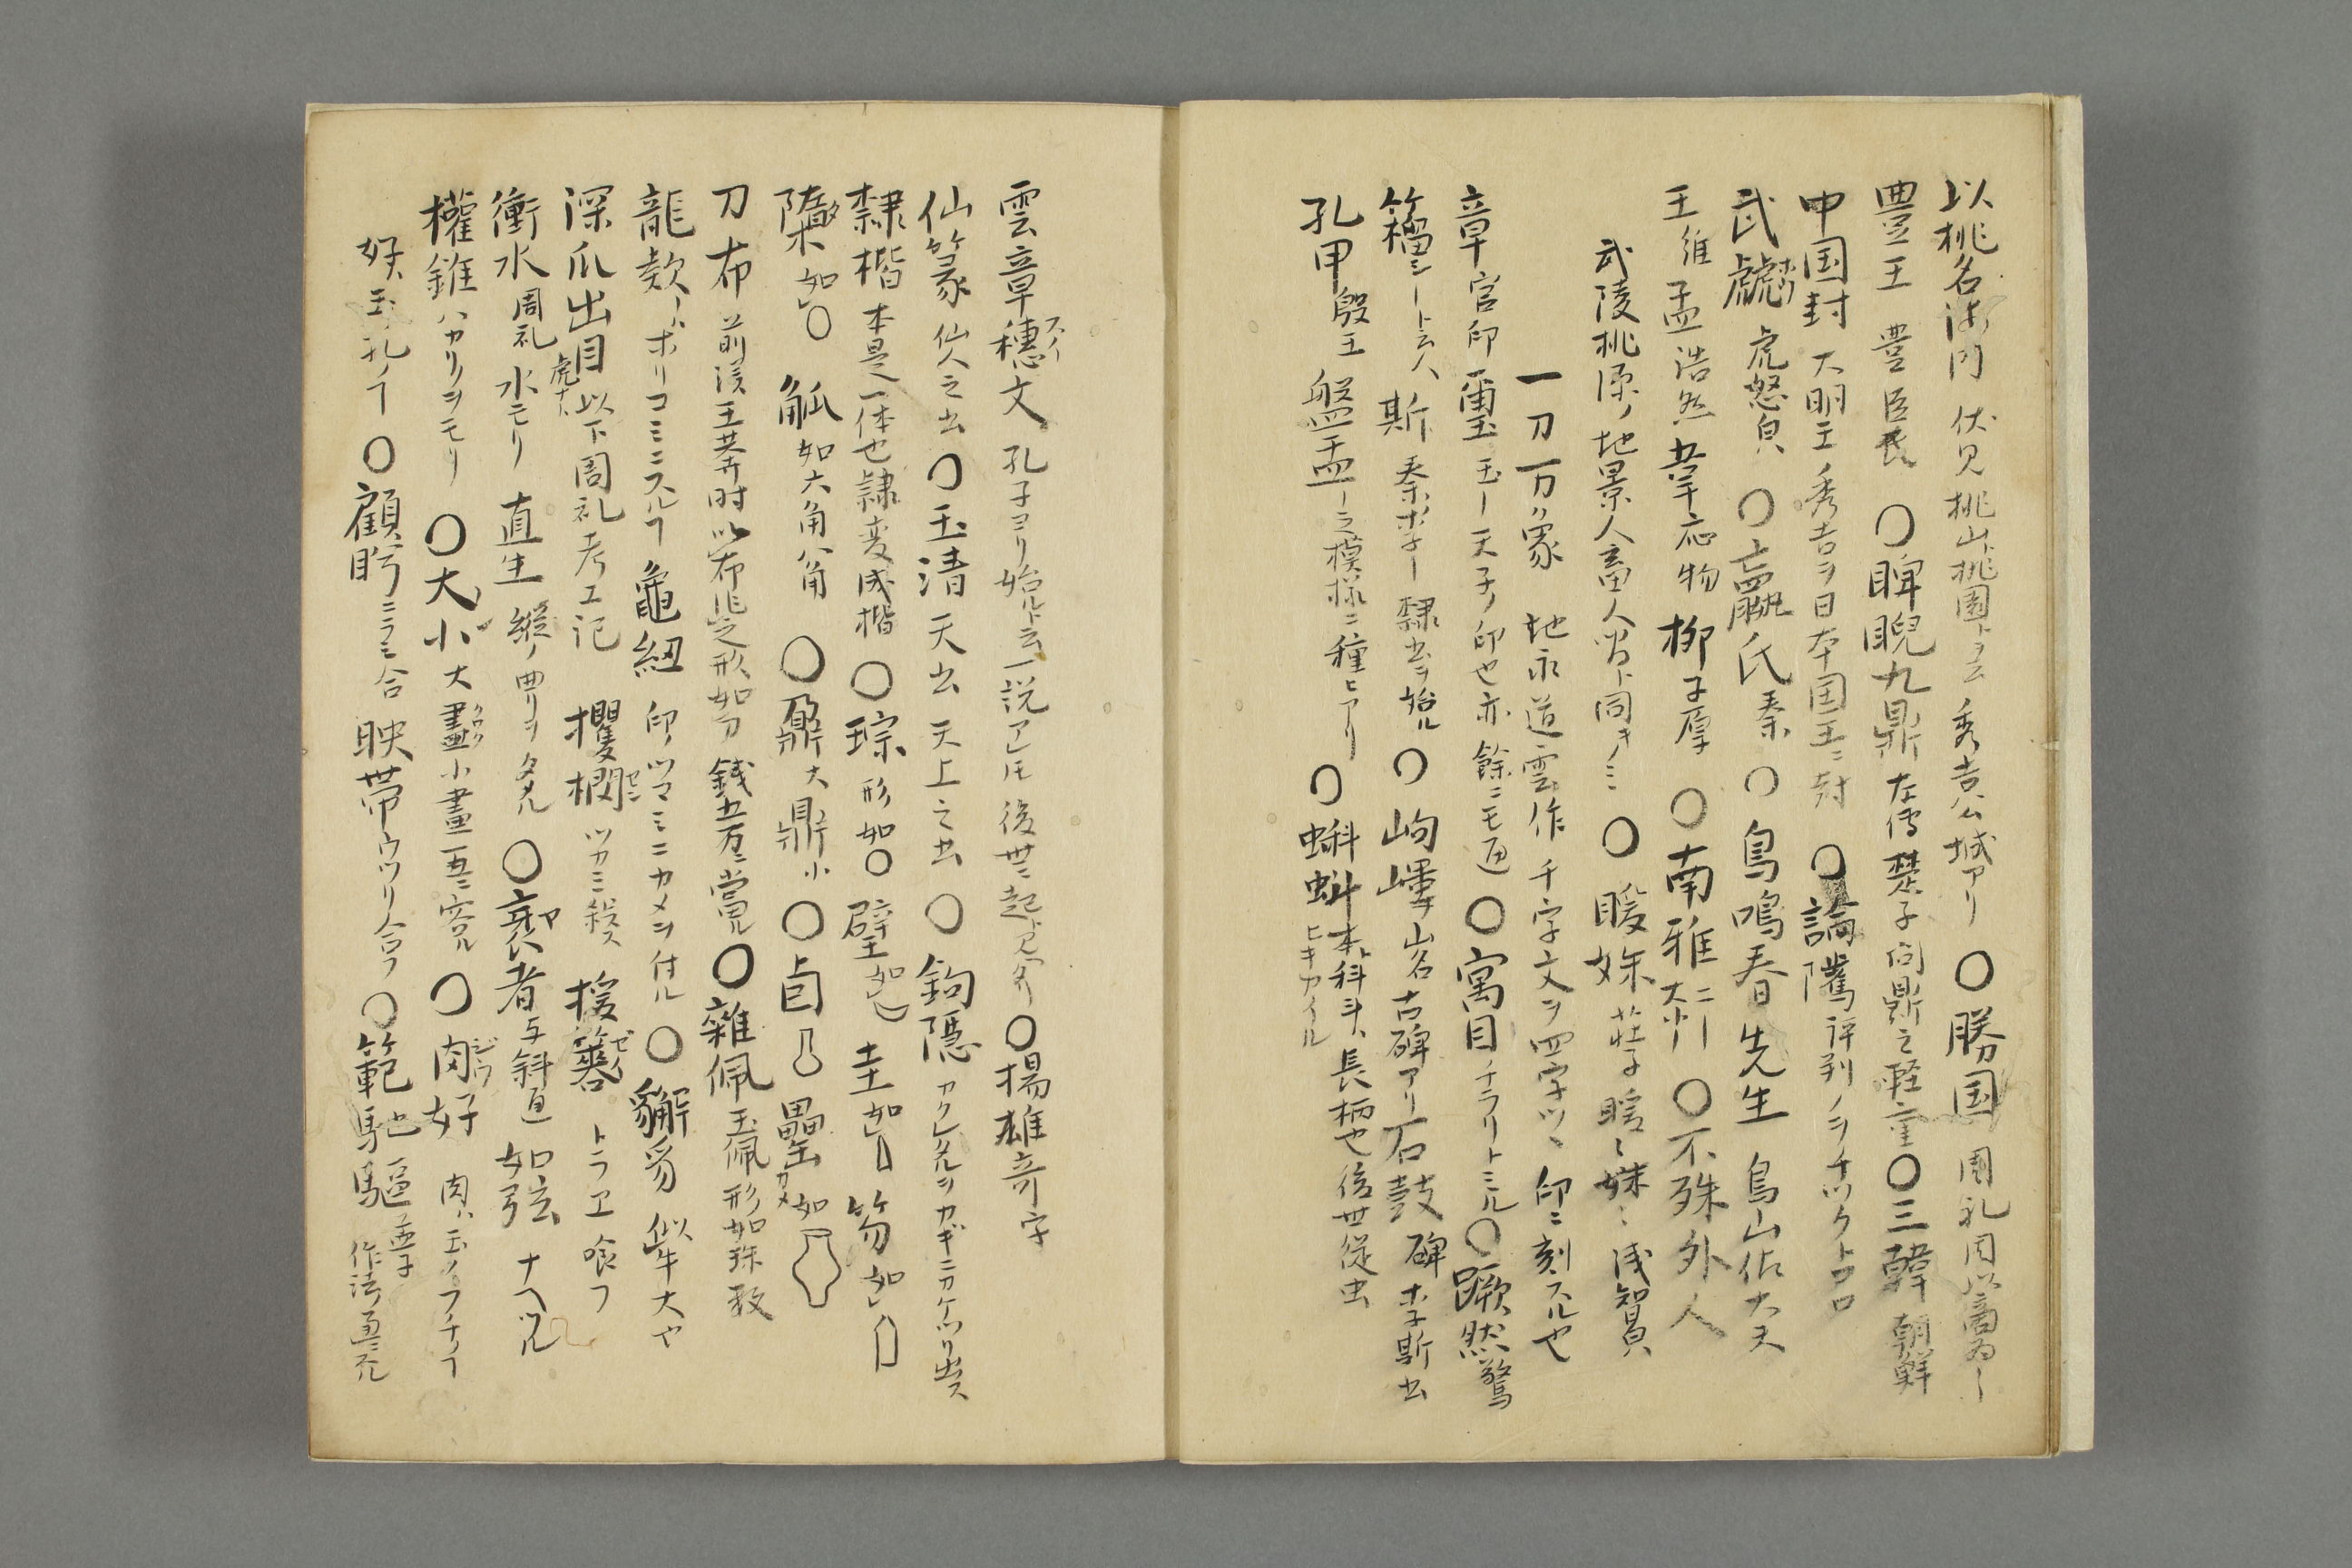 以桃名海内 伏見桃山ト桃園ト云 秀吉公城アリ ○勝国 周礼因以喬為ー
豊王 豊臣氏 ○睥睨九鼎 左傳楚子問鼎之軽重 ○三韓 朝鮮
中国封 大明王ノ秀吉ヲ日本国王ニ封 ○論隲 評判ノヲチツクトコロ
武虓 虎怒皃 ○嬴氏 秦 ○鳥鳴春先生 鳥山佐大夫
王維 孟浩然 韋応物 柳子厚 ○南雅 二ー大小ー ○不殊外人
武陵桃源ノ地景人畜人間ト同キノミ ○暖姝 荘子暖々姝々浅智皃
一刀万象 地永道雲作 千字文ヲ四字ツヽ印ニ刻スル也
章 官印 璽 玉ー天子ノ印也亦餘ニモ通 ○寓目 チラリトミル ○蹶然 驚
籀 ミート云人 斯 秦李ー隷書ヲ始ル ○岣嶁 山名古碑アリ 石鼓 碑李斯書
孔甲 殷王 盤盂 ー之模様ニ種ヒアリ ○蝌蚪 本ト科斗ハ長柄也後世従虫 ヒキカイル
雲章穗文 孔子ヨリ始ルト云一説アレ𪜈後世ニ起ト見ヘタリ ○揚雄奇字
仙篆 仙人之書 ○玉清 天書 天上之書 ○鉤隠 カクレタルヲカギニカケツリ出ス
隷楷 本是一体也隷変成楷 ○琮 形如○ 璧 如此 圭 如此 笏 如此
隋 如此○ 觚 如六角八角 ○鼐 大鼎小 ○卣 罍 カメ如
刀布 前漢王莽時以布造之形如刀 銭五万ニ當ル ○雜佩 玉佩形如珠数
龍欵 ーハホリコミニスルヿ 龜紐 印ノツマミニカメヲ付ル ○獬豸 似牛大也
深爪出目 虎ナト以下周礼考工記 攫㭠 ツカミ殺ス 援簭 トラヱ喰フ
衡水 周礼水モリ 直生 縦ノ曲リヲタメル ○裒者 与斜通 如弦 ナヘツル
權錐 ハカリノヲモリ ○大小 大畫小畫一五ニ容ル ○肉好 肉ハ玉ノフチノヿ
好ハ玉ノ孔ノヿ ○顧眄 ニラミ合 映帯 ウツリ合フ ○範馳驅 孟子 作法通ニ